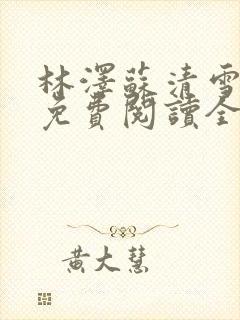 林澤蘇清雪
免費閱讀全
黃大慧